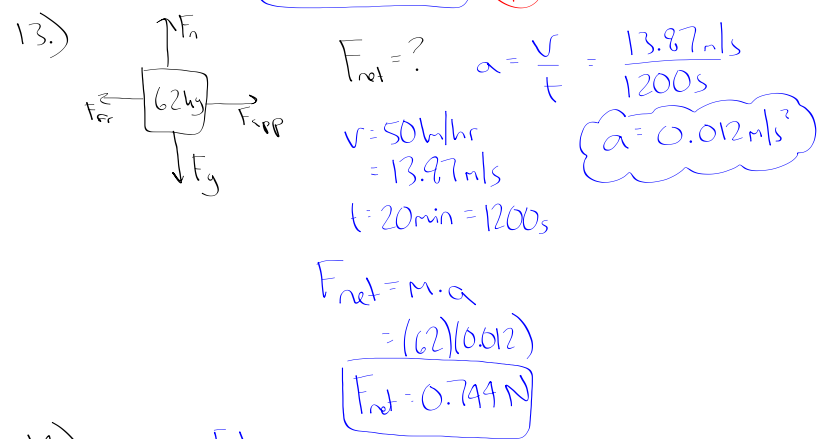 13.)
Fn
62kg
Ffr
Fapp
Fg
Fnet = ?
a = v/t = 13.87m/s / 1200s
a = 0.012m/s²
v = 50km/hr
= 13.87m/s
t = 20min = 1200s
Fnet = m·a
= (62)(0.012)
Fnet = 0.744 N